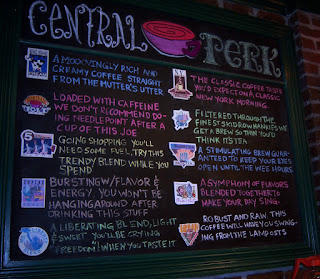 CENTRAL PERK
A MOOVINGLY RICH AND
CREAMY COFFEE STRAIGHT
FROM THE MUTTER'S UTTER
LOADED WITH CAFFEINE
WE DON'T RECOMMEND DO-
ING NEEDLEPOINT AFTER A
CUP OF THIS JOE
GOING SHOPPING YOU'LL
NEED SOME FUEL, TRY THIS
TRENDY BLEND WHILE YOU
SPEND
BURSTING W/FLAVOR &
ENERGY. YOU WON'T BE
HANGING AROUND AFTER
DRINKING THIS STUFF
A LIBERATING BLEND, LIGHT
& SWEET YOU'LL BE CRYING
"FREEDOM"! WHEN YOU TASTE IT
THE CLASSIC COFFEE TASTE
YOU'D EXPECT ON A, CLASSIC
NEW YORK MORNING.
FILTERED THROUGH THE
FINEST SKID ROW HANKIES WE
GET A BREW SO THIN YOU'D
THINK ITS TEA
A STIMULATING BREW GUAR-
ANTEED TO KEEP YOUR EYES
OPEN UNTIL THE WEE HOURS
A SYMPHONY OF FLAVORS
BLENDED TOGETHER TO
MAKE YOUR DAY SING.
ROBUST AND RAW THIS
COFFEE WILL HAVE YOU SWING-
ING FROM THE LAMP OSTS